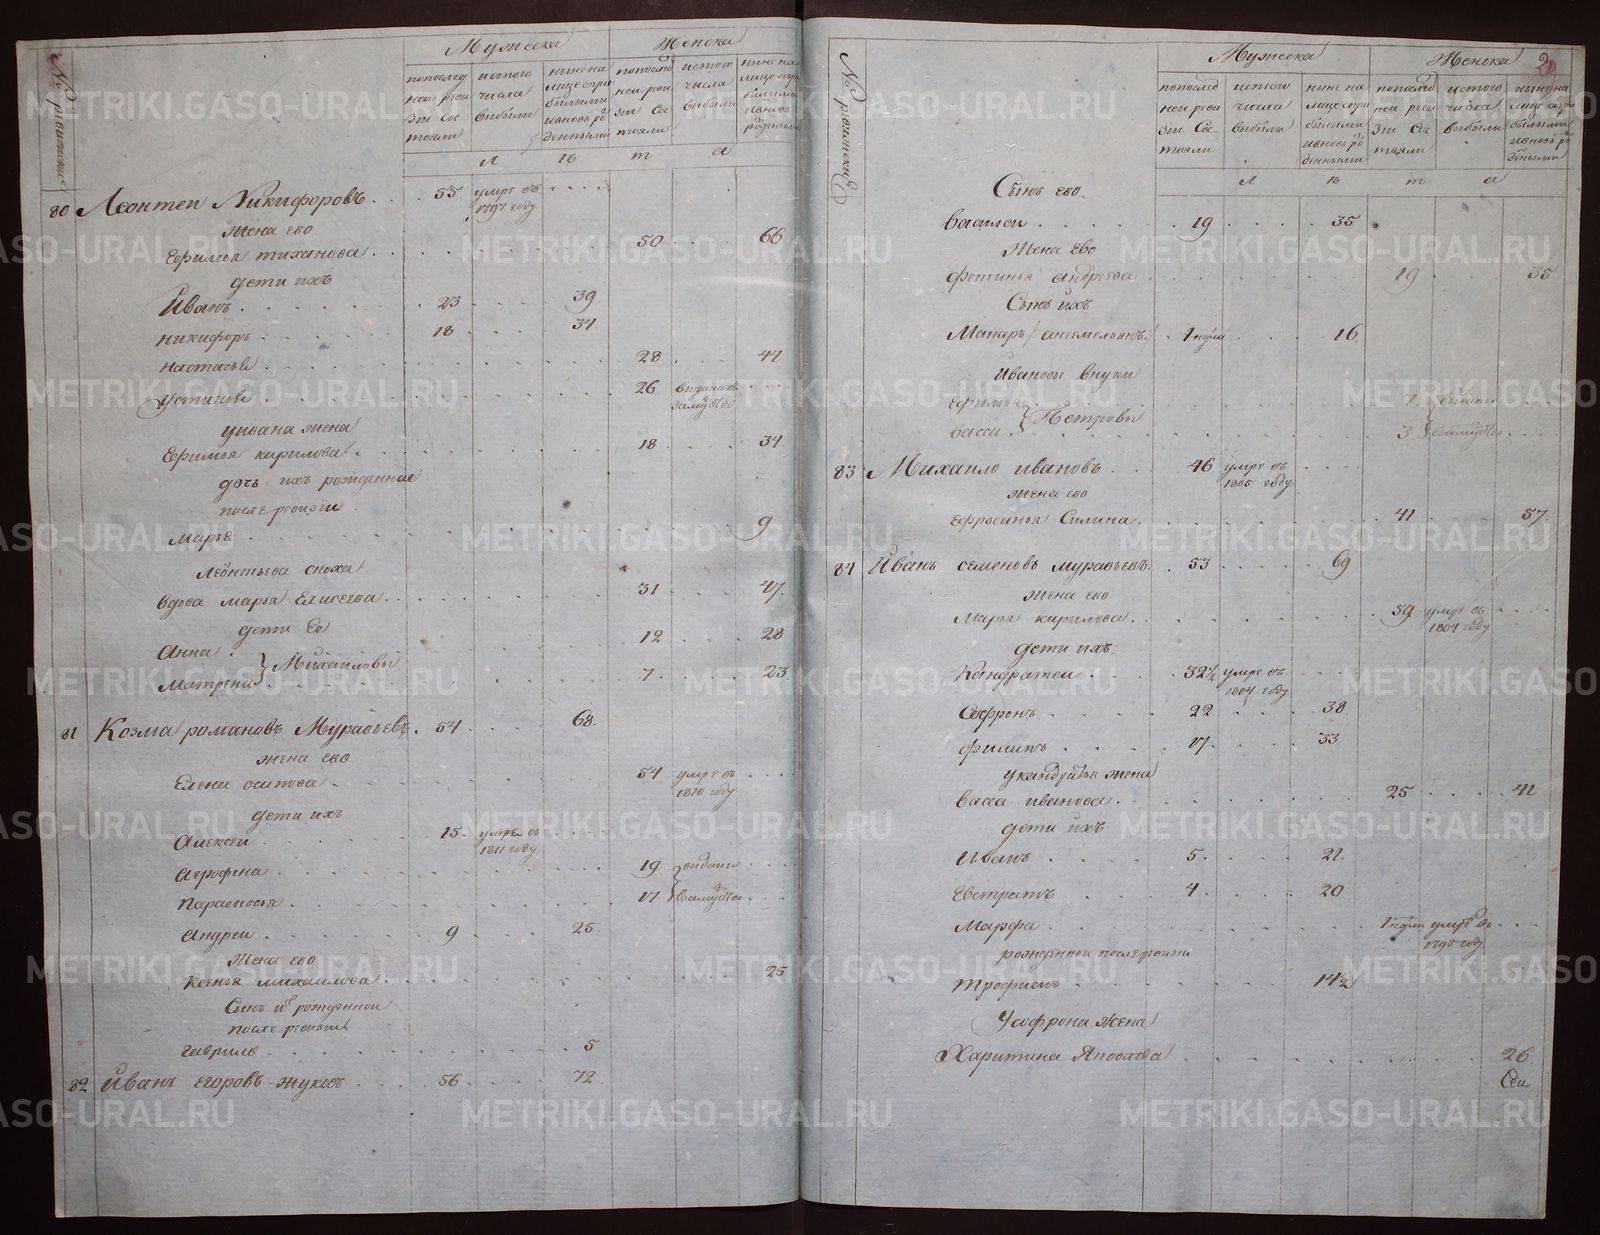 № ревижские
Мужеска
Женска
попослед ней реви зии Сос тояли
истого числа выбыли
ныне на лице спри былыми ивновь ро жденными
попослед ней реви зии Сос тояли
истого числа выбыли
ныне на лице спри былыми ивновь рожденными
л ѣ т а
80 Леонтеи Никифоровъ 55 умре въ 1797 году
жена ево
Ефимья тиханова 50 66
дети ихъ
Иванъ 23 39
никифоръ 18 34
настасья 28 44
устинья 26 выдана в замужество
уивана жена
Ефимья кирилова 18 34
дочь ихъ рожденная
после ревизии
Марья 9
Леонтьева сноха
вдова марья Елисеева 31 47
дети Ее
Анна 12 28
Матрена Михаиловы 7 23
81 Козма романовъ Муравьевъ 54 68
жена ево
Елена осипова 54 умре въ 1810 году
дети ихъ
Алексеи 15 умре въ 1811 году
Агрофена 19 выданы
Парасковья 17 взамужество
Андреи 9 25
Жена ево
Ксенья михаилова 25
Сынъ их рожденнои
после ревизии
гаврило 5
82 Иванъ егоровъ жуковъ 56 72
№ ревижские
Мужеска
Женска
попослед ней реви зии Сос тояли
истого числа выбыли
ныне на лице спри былыми ивновь ро жденными
попослед ней реви зии Сос тояли
истого числа выбыли
ныне на лице спри былыми ивновь ро жденными
л ѣ т а
Сынъ ево
василеи 19 35
Жена ево
фетинья андреева 19 35
Сынъ ихъ
Макаръ 1 недли 16
Ивановы внуки
Ефимья 7 выданы
васса Петровы 3 взамужество
83 Михаило ивановъ 46 умре въ 1806 году
жена ево
ефросинья Силина 41 57
84 Иванъ семеновъ муравьевъ 53 69
жена ево
Марья кирилова 59 умре въ 1804 году
дети ихъ
Кандратеи 32½ умре въ 1804 году
Софронъ 22 38
филипъ 17 33
укандратья жена
васса иванова 25 41
дети ихъ
Иванъ 5 21
Евстратъ 4 20
Марфа 1 недли умре въ 1795 году
рожденнои после ревизии
трофимъ 14½
Усофрона жена
Харитина Яковлева 26
Сеи
METRIKI.GASO-URAL.RU